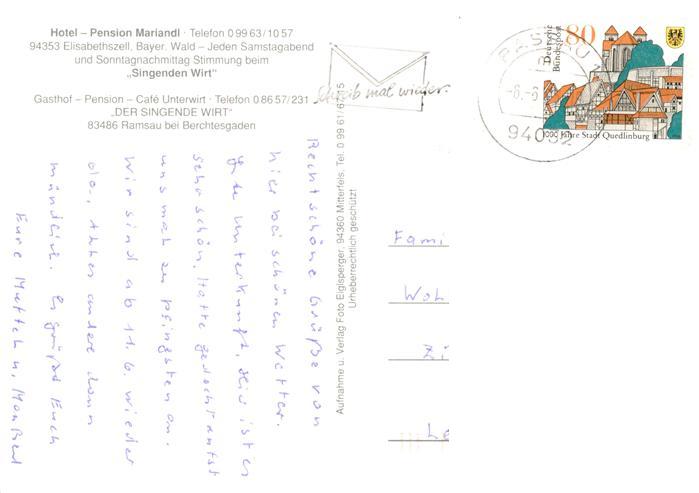 Hotel – Pension Mariandl · Telefon 0 99 63/10 57
94353 Elisabethszell, Bayer. Wald – Jeden Samstagabend
und Sonntagnachmittag Stimmung beim
„Singenden Wirt“
Gasthof – Pension – Café Unterwirt · Telefon 0 86 57/231
„DER SINGENDE WIRT“
83486 Ramsau bei Berchtesgaden
Schreib mal wieder.
Recht schöne Grüße von
hier bei schönen Wetter.
Gute Unterkunft, hier ist es
sehr schön. Hatte gedacht rufst
uns mal zu pfingsten an.
Wir sind ab 11.6. wieder
da, alles andere dann
mündlich. Es grüßt Euch
Eure
Aufnahme u. Verlag Foto Eiglsperger, 94360 Mitterfels, Tel. 0 99 61/67 75
Urheberrechtlich geschützt
PASSAU
-6.-6
94032
80
Deutsche
Bundespost
1000 Jahre Stadt Quedlinburg
Fami
Woh
Zi
Le